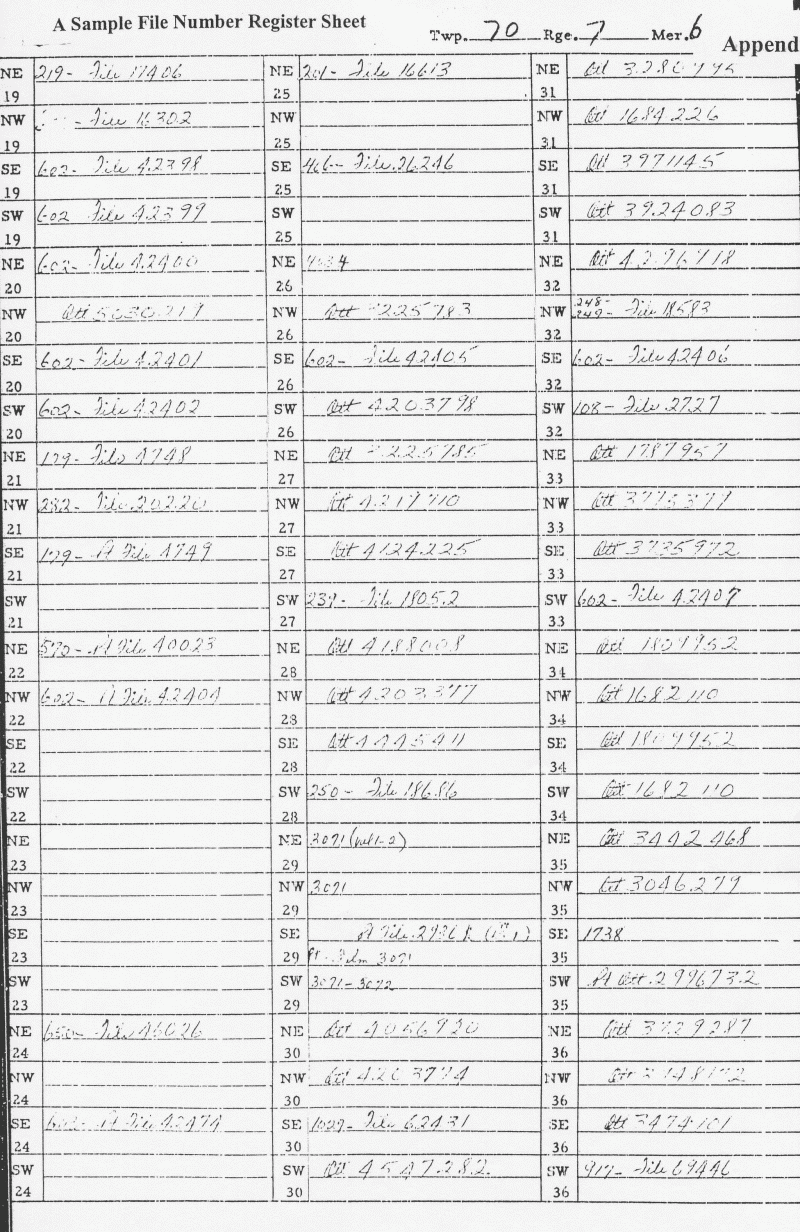 A Sample File Number Register Sheet
Twp. 70 Rge. 7 Mer. 6
Append
NE 219- File 17406
19
NW File 16302
19
SE 602- File 42398
19
SW 602 File 42399
19
NE 602- File 42400
20
NW Ott 5030219
20
SE 602- File 42401
20
SW 602- File 42402
20
NE 179- File 4748
21
NW 282- File 20220
21
SE 179- Pt File 4749
21
SW
21
NE 570- Pt File 40023
22
NW 602- Pt File 42404
22
SE
22
SW
22
NE
23
NW
23
SE
23
SW
23
NE File 46026
24
NW
24
SE Pt File
24
SW
24
NE 201- File 16613
25
NW
25
SE 466- File 36246
25
SW
25
NE
26
NW Ott
26
SE 602- File 42405
26
SW Ott 4203798
26
NE Ott
27
NW Ott 4217710
27
SE Ott 4124225
27
SW 239- File 18052
27
NE Ott 4188008
28
NW Ott 4203377
28
SE Ott 4445411
28
SW 250- File 18686
28
NE 3071
29
NW 3071
29
SE Pt File
29 Pt- Film 3071
SW 3071-3072
29
NE Ott 4056920
30
NW Ott 4203774
30
SE 1029- File 62431
30
SW Ott 4547282
30
NE Ott
31
NW Ott 1684226
31
SE Ott 3971145
31
SW Ott 3924083
31
NE Ott
32
NW 248-
249- File 18583
32
SE 602- File 42406
32
SW 108- File 2727
32
NE Ott 1787957
33
NW Ott 3775377
33
SE Ott 3735972
33
SW 602- File 42407
33
NE Ott
34
NW Ott 1682110
34
SE Ott
34
SW Ott 1682110
34
NE Ott 3442468
35
NW Ott 3046279
35
SE 1738
35
SW Pt Ott 2996732
35
NE Ott 3729287
36
NW Ott
36
SE Ott 3474101
36
SW 917- File 69446
36